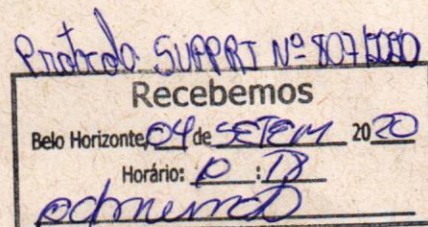 Protocolo SUPPRT Nº 807/2020
Recebemos
Belo Horizonte, 04 de SETEM 2020
Horário: 10 : 18